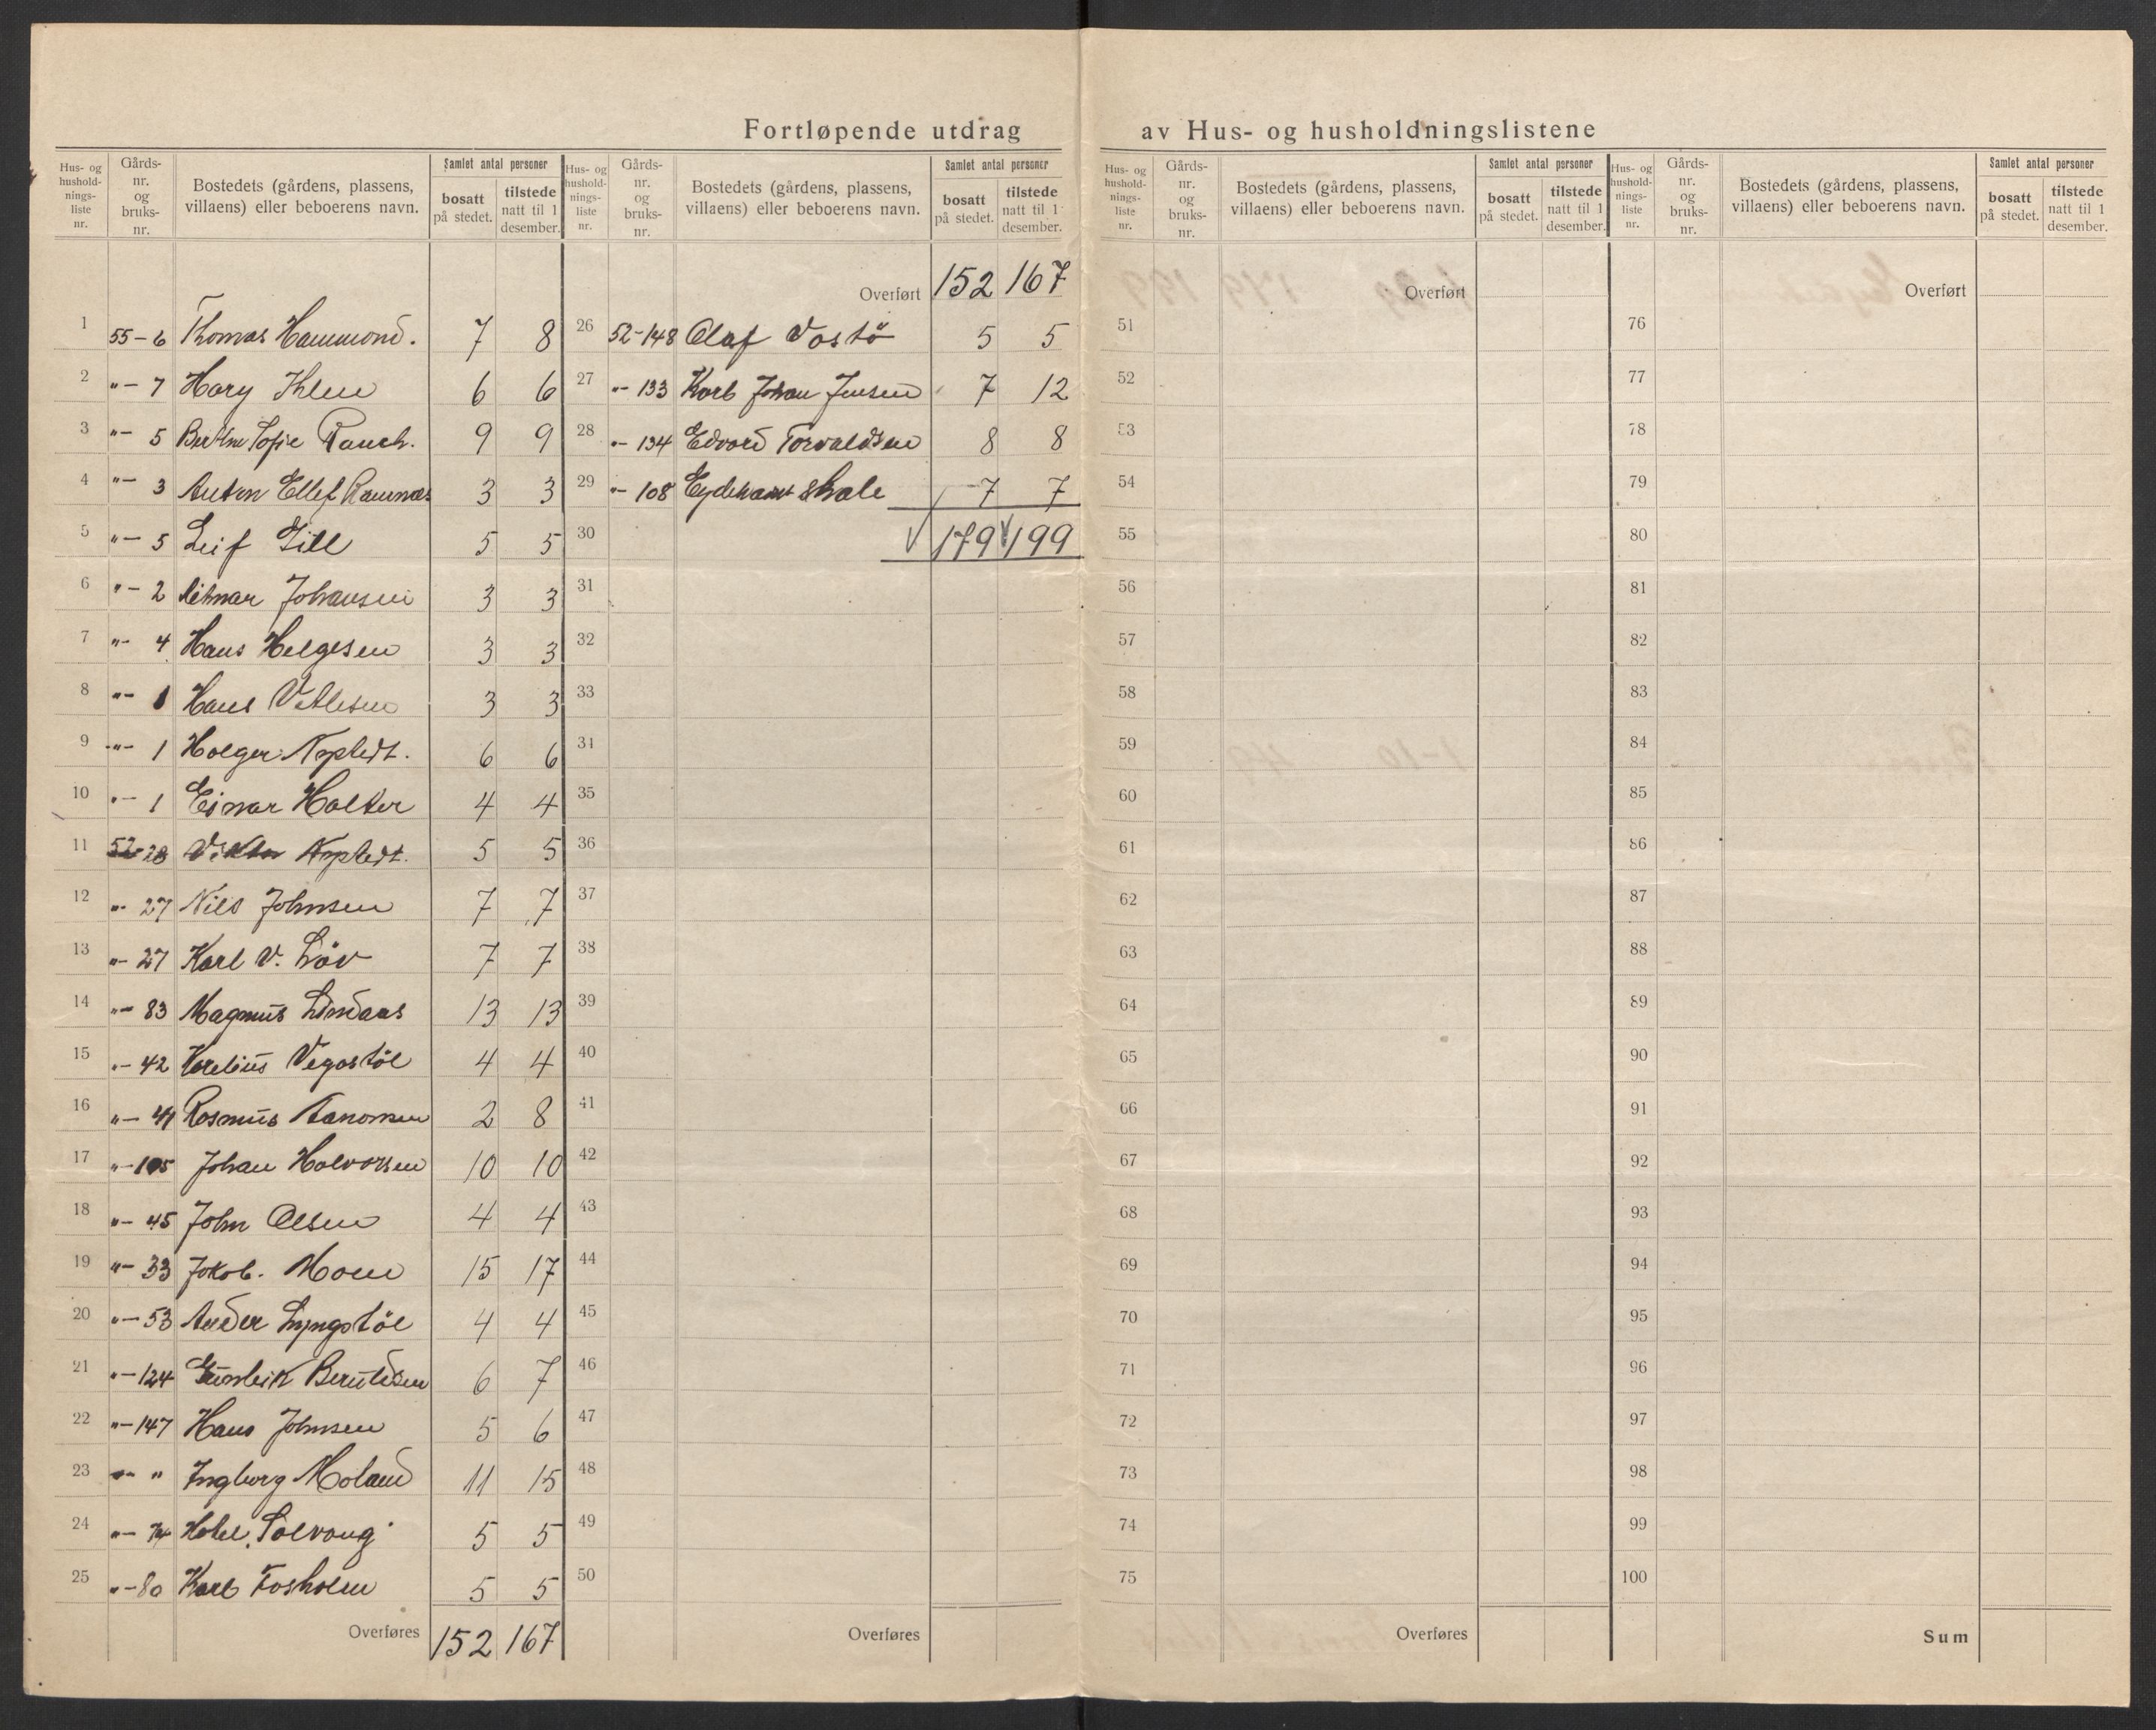 Fortløpende utdrag av Hus- og husholdningslistene
Hus- og hushold-nings-liste nr. Gårds-nr. og bruks-nr. Bostedets (gårdens, plassens, villaens) eller beboerens navn. Samlet antal personer bosatt på stedet. tilstede natt til 1 desember.
1 55-6 Thomas Hammond. 7 8
2 "- 7 Hary Ihlen 6 6
3 "- 5 Sofie Rauch. 9 9
4 "- 3 Anton Ellef Ramnæs 3 3
5 "- 5 Leif Gill 5 5
6 "- 2 Johansen 3 3
7 "- 4 Hans Helgesen 3 3
8 "- 1 Hans 3 3
9 "- 1 Holger Npstedt. 6 6
10 "- 1 Einar Holter 4 4
11 52-28 Viktor Npstedt. 5 5
12 "- 27 Nils Johnsen 7 7
13 "- 27 Karl V. Löv 7 7
14 "- 83 Magnus Lindaas 13 13
15 "- 42 Vegostöl 4 4
16 "- 41 Rasmus Aanonsen 2 8
17 "- 105 Johan Halvorsen 10 10
18 "- 45 John Olsen 4 4
19 "- 33 Jakob. Moen 15 17
20 "- 53 Lyngstöl 4 4
21 "- 124 Gunleik Berulfsen 6 7
22 "- 147 Hans Johnsen 5 6
23 "- " Ingborg Moland 11 15
24 "- 74 Hotel Solvang 5 5
25 "- 80 Karl Fosholm 5 5
Overføres 152 167
Hus- og hushold-nings-liste nr. Gårds-nr. og bruks-nr. Bostedets (gårdens, plassens, villaens) eller beboerens navn. Samlet antal personer bosatt på stedet. tilstede natt til 1 desember.
Overført 152 167
26 52-148 Olaf Vostö 5 5
27 "- 133 Karl Johan Jensen 7 12
28 "- 134 Edvard Torvaldsen 8 8
29 "- 108 Eydehavn skole 7 7
30 179 199
31
32
33
34
35
36
37
38
39
40
41
42
43
44
45
46
47
48
49
50
Overføres
Hus- og hushold-nings-liste nr. Gårds-nr. og bruks-nr. Bostedets (gårdens, plassens, villaens) eller beboerens navn. Samlet antal personer bosatt på stedet. tilstede natt til 1 desember.
Overført
51
52
53
54
55
56
57
58
59
60
61
62
63
64
65
66
67
68
69
70
71
72
73
74
75
Overføres
Hus- og hushold-nings-liste nr. Gårds-nr. og bruks-nr. Bostedets (gårdens, plassens, villaens) eller beboerens navn. Samlet antal personer bosatt på stedet. tilstede natt til 1 desember.
Overført
76
77
78
79
80
81
82
83
84
85
86
87
88
89
90
91
92
93
94
95
96
97
98
99
100
Sum